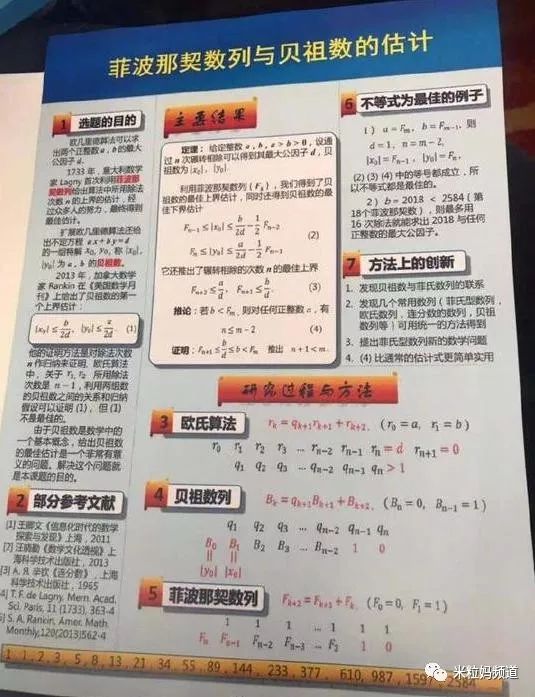 菲波那契数列与贝祖数的估计
1 选题的目的
欧几里德算法可以求
出两个正整数 a, b 的最大
公因子 d.
1733 年，意大利数学
家 Lagny 首次利用菲波那
契数列给出算法中所用除法
次数 n 的上界的估计，经
过众多人的努力，最终得到
最佳估计。
扩展欧几里德算法还给
出不定方程 ax+by=d
的一组特解 x₀, y₀, 称 |x₀|,
|y₀| 为 a, b 的贝祖数。
2013 年，加拿大数学
家 Rankin 在《美国数学月
刊》上给出了贝祖数的第一
个上界估计：
|x₀| ≤ b/2d, |y₀| ≤ a/2d. (1)
他的证明方法是对除法次数
n 作归纳来证明. 欧氏算法
中，关于 r₁, r₂ 所用除法
次数是 n−1，利用两组数
的贝祖数之间的关系和归纳
假设可以证明 (1)，但 (1)
不是最佳的。
由于贝祖数是数学中的
一个基本概念，给出贝祖数
的最佳估计是一个非常有意
义的问题。解决这个问题就
是本课题的目的。
2 部分参考文献
[1] 王卿文《信息化时代的数学
探索与发现》上海，2011
汪晓勤《数学文化透视》上
海科学技术出版社，2013
[3] A. Я. 辛钦《连分数》，上海
科学技术出版社，1965
4] T. F. de Lagny, Mem. Acad.
Sci. Paris, 11 (1733), 363-4
5] S. A. Rankin, Amer. Math.
Monthly,120(2013)562-4
主要结果
定理：给定整数 a, b, a > b > 0，设通
过 n 次辗转相除可以得到其最大公因子 d，贝
祖数为 |x₀|, |y₀|.
利用菲波那契数列 {Fₖ}，我们得到了贝
祖数的最佳上界估计，同时还得到贝祖数的最
佳下界估计
Fₙ₋₁ ≤ |x₀| ≤ b/2d − 1/2 Fₙ₋₂
(2)
Fₙ ≤ |y₀| ≤ a/2d − 1/2 Fₙ₋₁
它还推出了辗转相除的次数 n 的最佳上界
Fₙ₊₂ ≤ a/d, Fₙ₊₁ ≤ b/d. (3)
推论：若 b < Fₘ, 则对任何正整数 a，有
n ≤ m − 2 (4)
证明：Fₙ₊₁ ≤ b/d ≤ b < Fₘ 推出 n + 1 < m.
6 不等式为最佳的例子
1) a = Fₘ, b = Fₘ₋₁, 则
d = 1, n = m − 2,
|x₀| = Fₙ₋₁, |y₀| = Fₙ.
(2) (3) (4) 中的等号都成立，所
以不等式都是最佳的。
2) b = 2018 < 2584 (第
18个菲波那契数)，则最多用
16 次除法就能求出 2018 与任何
正整数的最大公因子。
7 方法上的创新
1. 发现贝祖数与菲氏数列的联系
2. 发现几个常用数列（菲氏型数列，
欧氏数列，连分数的数列，贝祖
数列等）可用统一的方法得到
3. 提出菲氏型数列新的数学问题
4. (4) 比通常的估计式更简单实用
研究过程与方法
3 欧氏算法 rₖ = qₖ₊₁rₖ₊₁ + rₖ₊₂, (r₀ = a, r₁ = b)
r₀ r₁ r₂ r₃ ... rₙ₋₂ rₙ₋₁ rₙ = d rₙ₊₁ = 0
q₁ q₂ q₃ ... qₙ₋₂ qₙ₋₁ qₙ > 1
4 贝祖数列 Bₖ = qₖ₊₁Bₖ₊₁ + Bₖ₊₂, (Bₙ = 0, Bₙ₋₁ = 1)
q₁ q₂ q₃ ... qₙ₋₂ qₙ₋₁ qₙ
B₀ B₁ B₂ B₃ ... Bₙ₋₂ 1 0
|| ||
|y₀| |x₀|
5 菲波那契数列 Fₖ₊₂ = Fₖ₊₁ + Fₖ, (F₀ = 0, F₁ = 1)
1 1 1 ... 1 1 1
Fₙ Fₙ₋₁ Fₙ₋₂ Fₙ₋₃ ... F₂ 1 0
1, 1, 2, 3, 5, 8, 13, 21, 34, 55, 89, 144, 233, 377, 610, 987, 1597, 2584
米粒妈频道